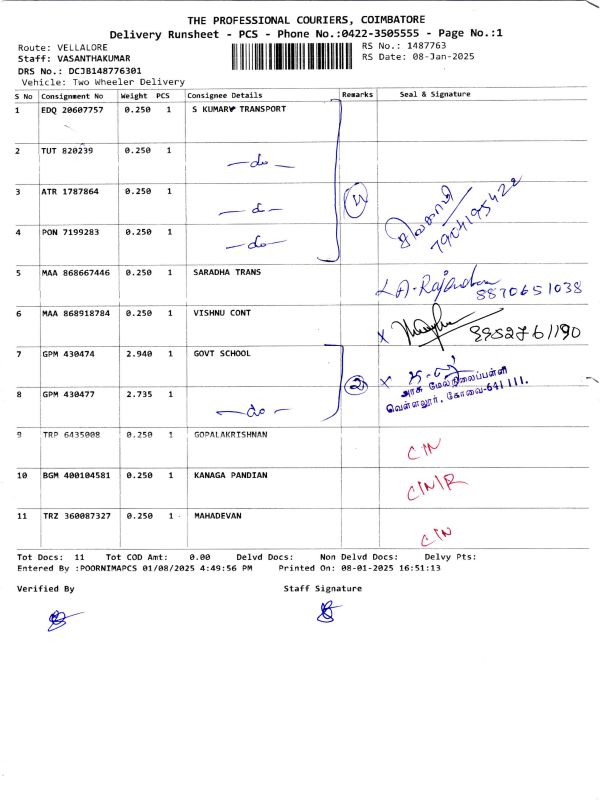 THE PROFESSIONAL COURIERS, COIMBATORE
Delivery Runsheet - PCS - Phone No.:0422-3505555 - Page No.:1
Route: VELLALORE
RS No.: 1487763
Staff: VASANTHAKUMAR
RS Date: 08-Jan-2025
DRS No.: DCJB148776301
Vehicle: Two Wheeler Delivery
S No Consignment No Weight PCS Consignee Details Remarks Seal & Signature
1 EDQ 20607757 0.250 1 S KUMAR TRANSPORT
2 TUT 820239 0.250 1 —do—
3 ATR 1787864 0.250 1 —d—
4
4 PON 7199283 0.250 1 —do—
7904195422
5 MAA 868667446 0.250 1 SARADHA TRANS
8870651038
6 MAA 868918784 0.250 1 VISHNU CONT
x 9952761190
7 GPM 430474 2.940 1 GOVT SCHOOL
2 x
அரசு மேல்நிலைப்பள்ளி
வெள்ளலூர், கோவை-641 111.
8 GPM 430477 2.735 1 —do—
9 TRP 6435008 0.250 1 GOPALAKRISHNAN CIN
10 BGM 400104581 0.250 1 KANAGA PANDIAN CIN/R
11 TRZ 360087327 0.250 1 MAHADEVAN CIN
Tot Docs: 11 Tot COD Amt: 0.00 Delvd Docs: Non Delvd Docs: Delvy Pts:
Entered By :POORNIMAPCS 01/08/2025 4:49:56 PM Printed On: 08-01-2025 16:51:13
Verified By Staff Signature